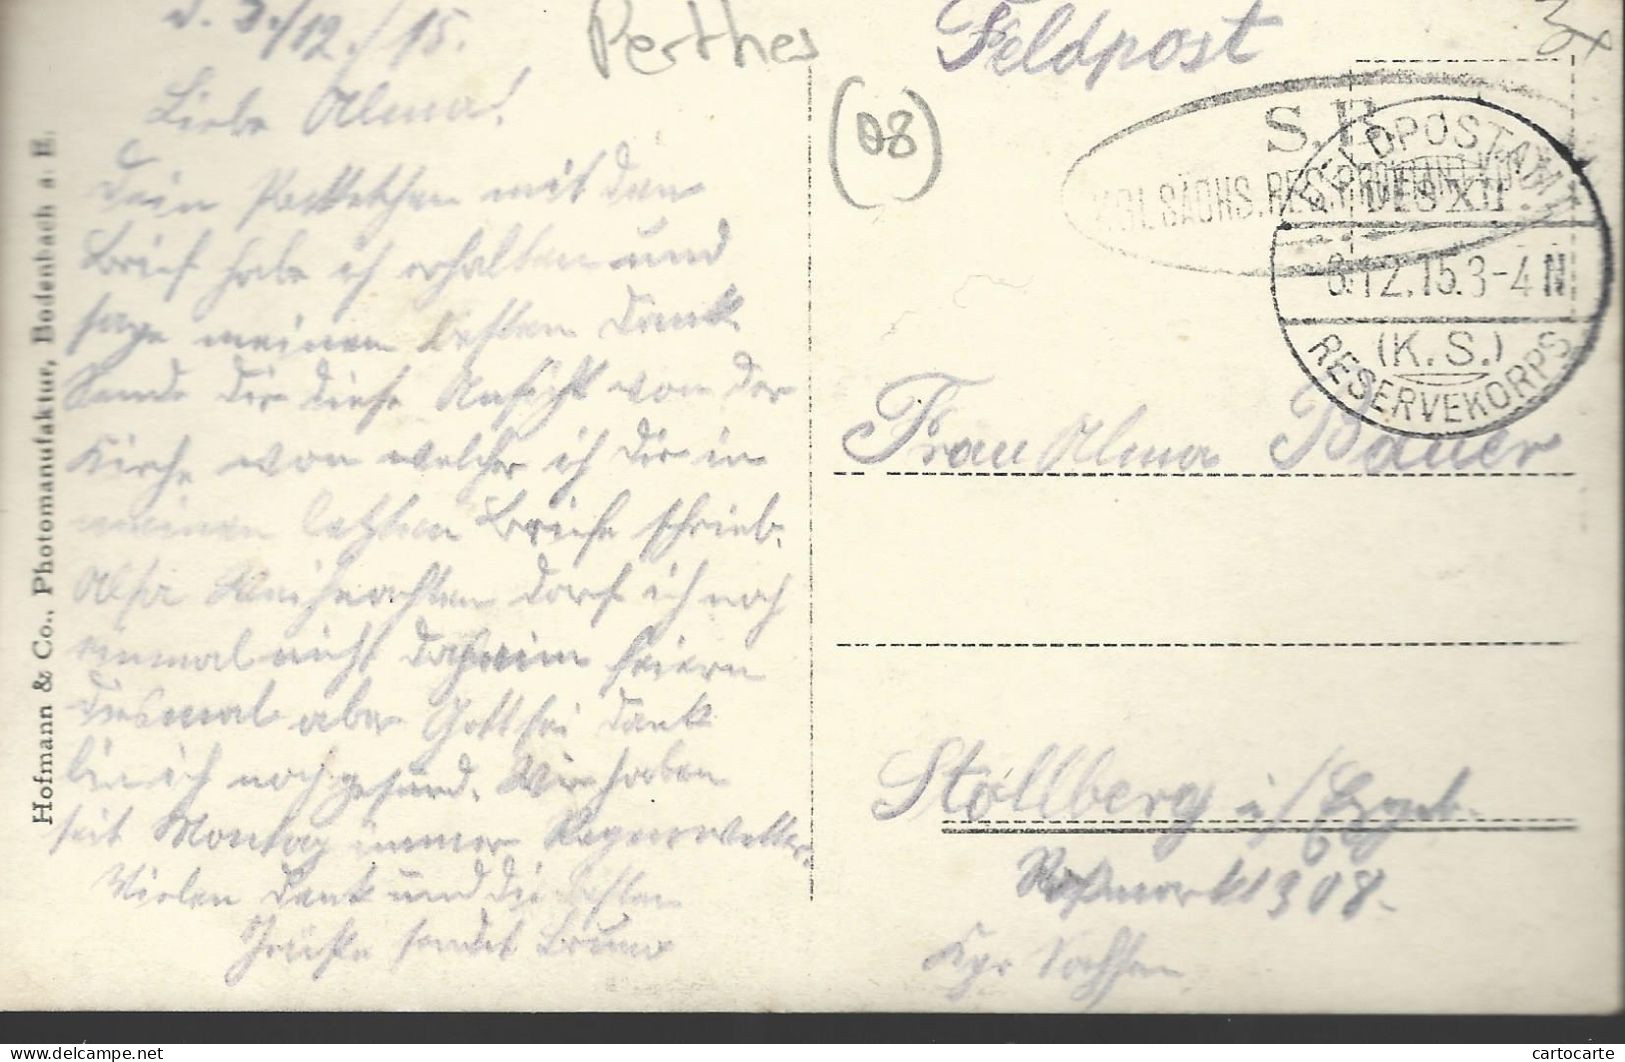 d. 3./12./15.
Liebe Alma!
Dein Packetchen mit den
Brief habe ich erhalten und
sage meinen besten Dank.
Sende Dir diese Ansicht von der
Kirche von welcher ich Dir in
meinen letzten Briefe schrieb.
Also Weihnachten darf ich noch
einmal nicht daheim feiern
diesmal aber Gott sei Dank
bin ich noch gesund. Wir haben
seit Montag immer Regenwetter.
Vielen Dank und die besten
Grüße sendet Bruno
Hofmann & Co., Photomanufaktur, Bodenbach a. E.
Perthes
(08)
Feldpost
S. B.
KGL. SÄCHS. RES.
FELDPOSTAMT
DES XII.
3.12.15.3-4 N
(K. S.)
RESERVEKORPS
Frau Alma Bauer
Stollberg i/Erzgeb.
Roßmarkt 308.
Kgr Sachsen
cartocarte